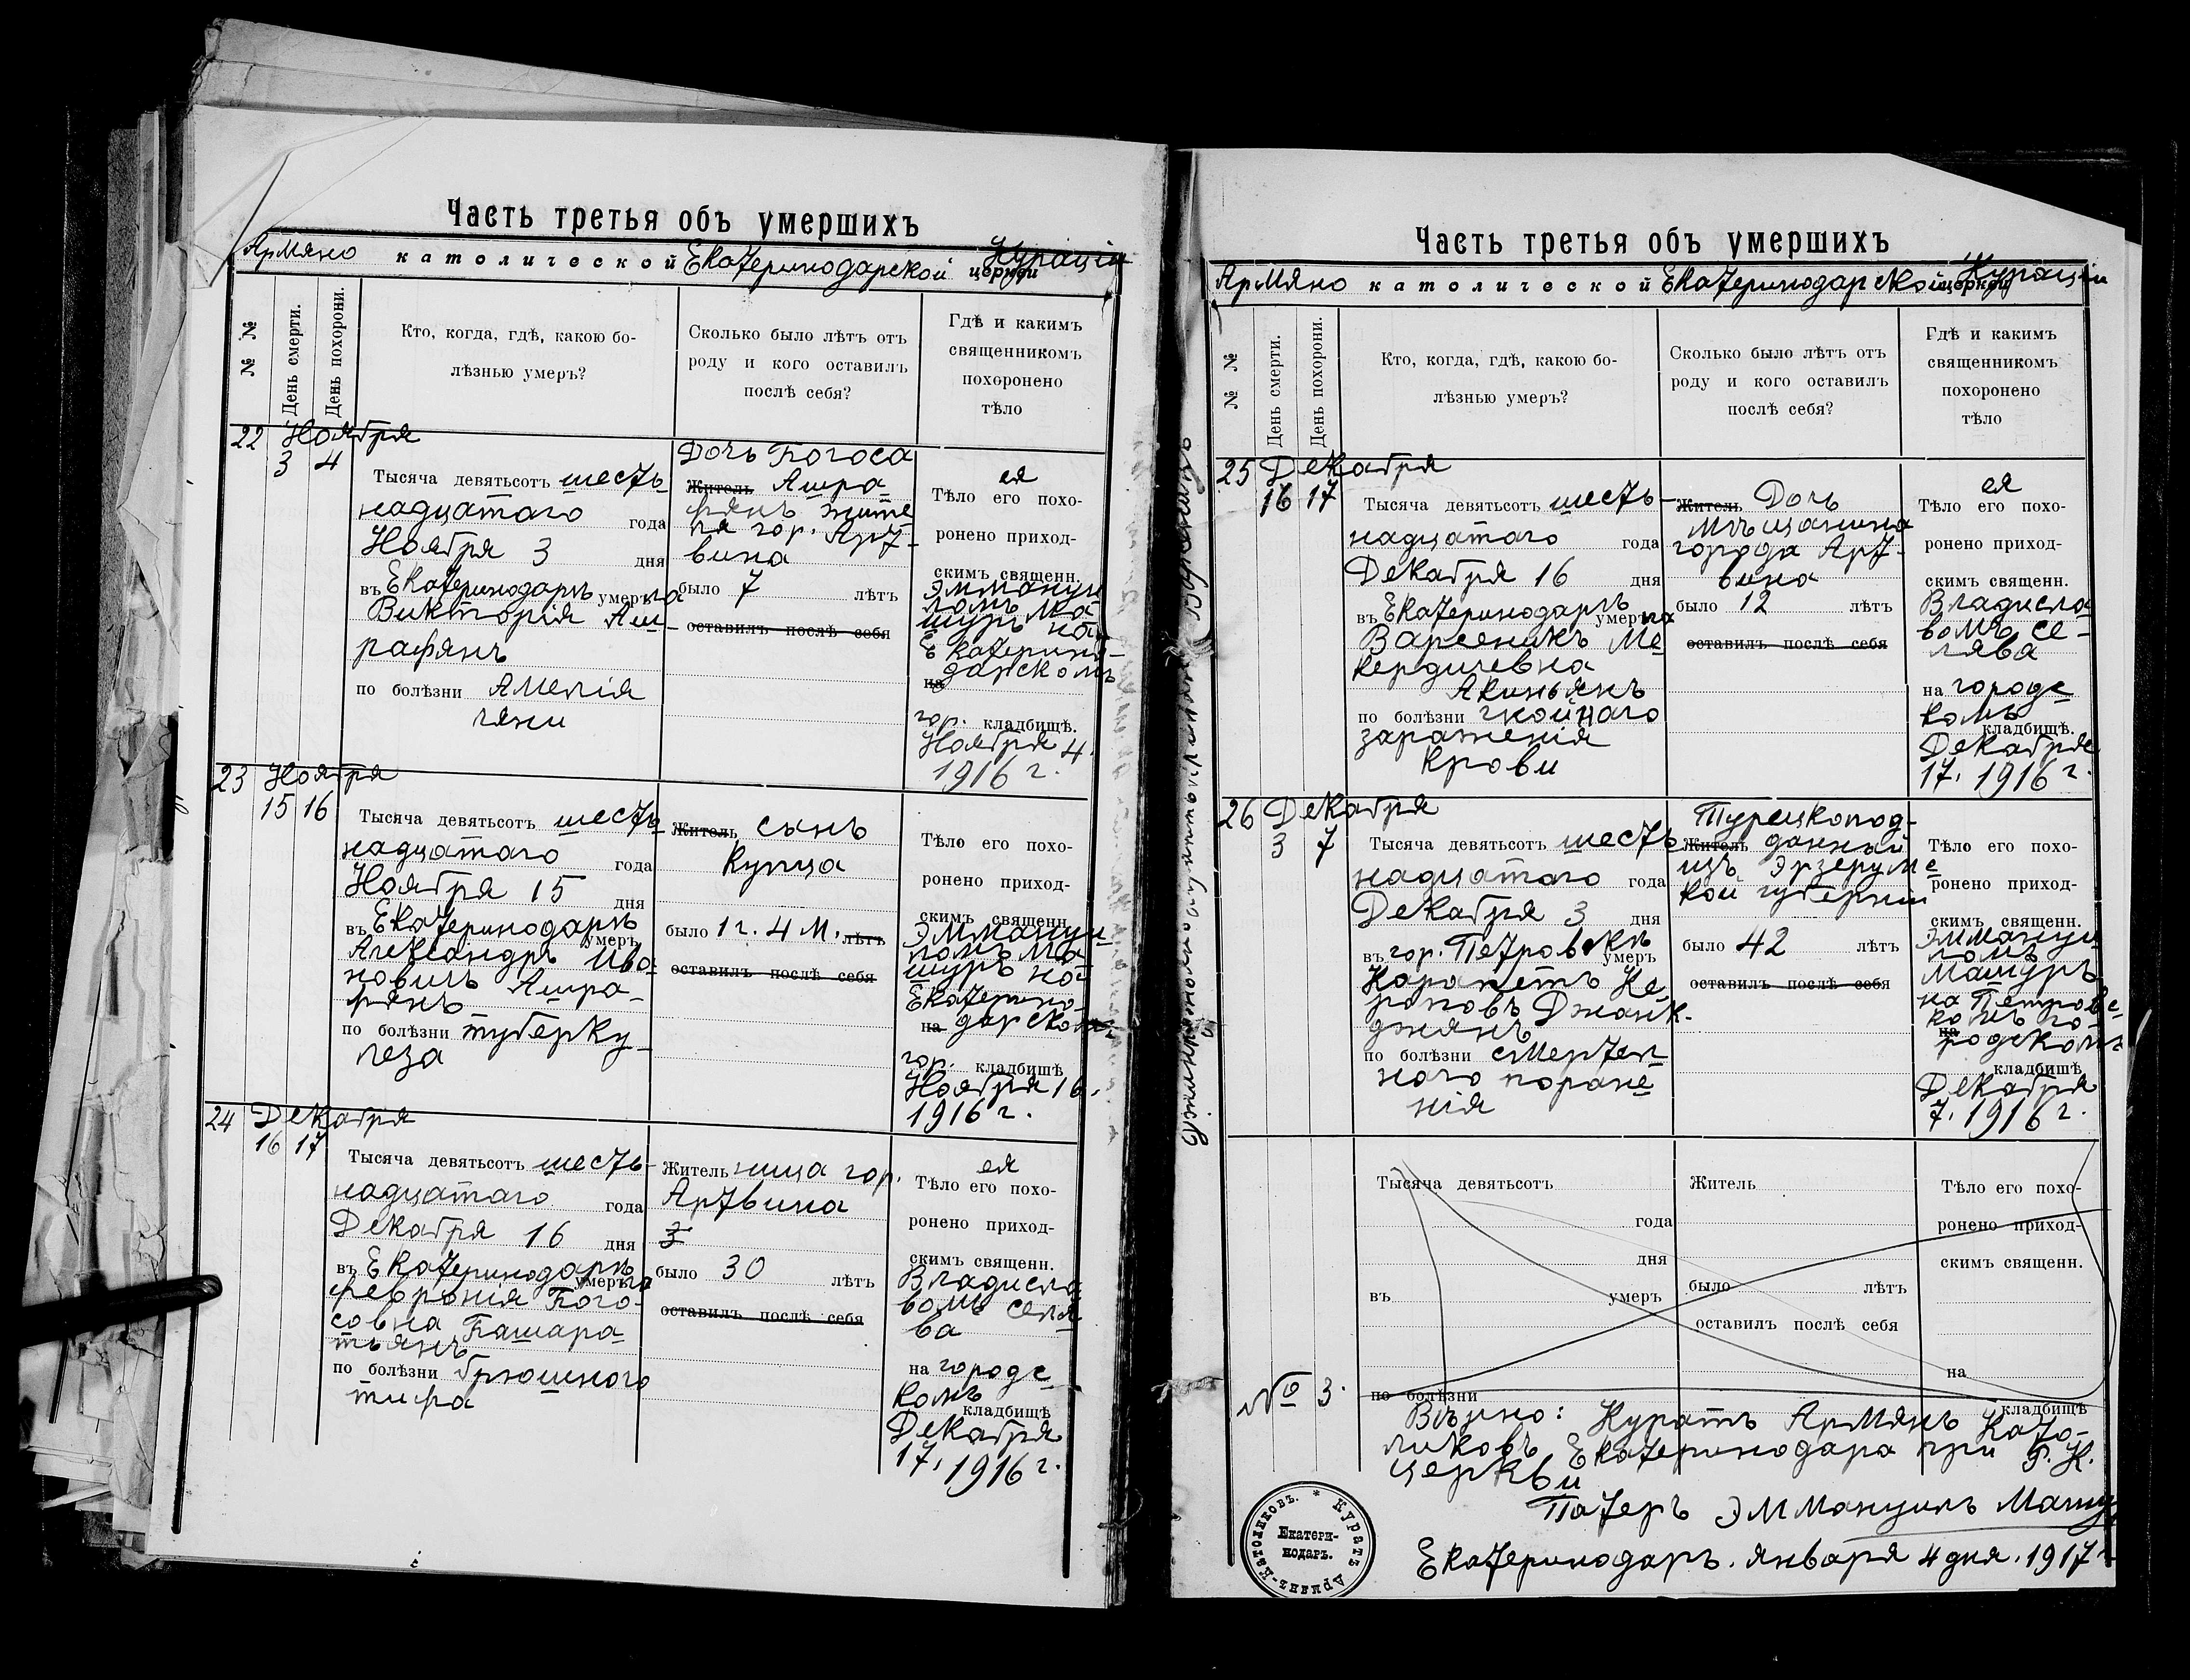 Часть третья объ умершихъ
Армяно католической Екатеринодарской церкви Кураціи
№ №
День смерти.
День похорони.
Кто, когда, гдѣ, какою бо-
лѣзнью умеръ?
Сколько было лѣтъ отъ
роду и кого оставилъ
послѣ себя?
Гдѣ и какимъ
священникомъ
похоронено
тѣло
22 Ноября
3 4
Тысяча девятьсотъ шесть-
надцатаго года
Ноября 3 дня
въ Екатеринодарѣ умерла
Викторія Аш-
рафянъ
по болѣзни
Дочь Богоса
Житель Ашра-
фянъ жите
ля гор. Арт-
вина
было 7 лѣтъ
оставилъ послѣ себя
ея
Тѣло его похо-
ронено приход-
скимъ священн.
Эммануи
ломъ Ма-
шуръ на
Екатерино-
на дарскомъ
гор. кладбищѣ.
Ноября 4.
1916 г.
23 Ноября
15 16
Тысяча девятьсотъ шесть-
надцатаго года
Ноября 15 дня
въ Екатеринодарѣ
умеръ
Александръ Ива-
новичъ Ашра-
фянъ
по болѣзни туберку-
леза
Житель сынъ
купца
было 1 г. 4 м. лѣтъ
оставилъ послѣ себя
Тѣло его похо-
ронено приход-
скимъ священн.
Эммануи-
ломъ Ма-
шуръ на
Екатерино-
на дарскомъ
гор. кладбищѣ
Ноября 16.
1916 г.
24 Декабря
16 17
Тысяча девятьсотъ шесть-
надцатаго года
Декабря 16 дня
въ Екатеринодарѣ
умерла
Февронія Бого-
совна Башара-
тьянъ
по болѣзни брюшного
тифа
Жительница гор.
Артвина
3
было 30 лѣтъ
оставилъ послѣ себя
ея
Тѣло его похо-
ронено приход-
скимъ священн.
Владисла
вомъ Селя
ва
на городс-
комъ
кладбищѣ
Декабря
17. 1916 г.
Часть третья объ умершихъ
Армяно католической Екатеринодарской церкви Кураціи
№ №
День смерти.
День похорони.
Кто, когда, гдѣ, какою бо-
лѣзнью умеръ?
Сколько было лѣтъ отъ
роду и кого оставилъ
послѣ себя?
Гдѣ и какимъ
священникомъ
похоронено
тѣло
25 Декабря
16 17
Тысяча девятьсотъ шесть-
надцатаго года
Декабря 16 дня
въ Екатеринодарѣ
умерла
Варсеникъ Ме-
кердичевна
Акиньянъ
по болѣзни гнойнаго
зараженія
крови
Житель Дочь
мѣщанина
города Арт-
вина
было 12 лѣтъ
оставилъ послѣ себя
ея
Тѣло его похо-
ронено приход-
скимъ священн.
Владисла
вомъ Се-
лява
на городс
комъ
кладбищѣ.
Декабря
17. 1916 г.
26 Декабря
3 7
Тысяча девятьсотъ шесть
надцатаго года
Декабря 3 дня
въ гор. Петровскѣ
умеръ
Карапетъ Ке-
роповъ Джанк-
джянъ
по болѣзни смертел
наго поране-
нія
Турецкопод-
Житель данный
изъ Эрзерумс
кой губерніи
было 42 лѣтъ
оставилъ послѣ себя
Тѣло его похо-
ронено приход-
скимъ священн.
Эммануи
ломъ
Машуръ
на Петровс-
комъ го-
на родскомъ
кладбищѣ
Декабря
7. 1916 г.
Тысяча девятьсотъ
года
дня
въ умеръ
по болѣзни
Житель
было лѣтъ
оставилъ послѣ себя
Тѣло его похо-
ронено приход-
скимъ священн.
на
кладбищѣ
№ 3.
Вѣрно: Куратъ Армянъ Като-
ликовъ Екатеринодара при Р. К.
церкви
Патеръ Эммануилъ Машуръ
Екатеринодаръ. Января 4 дня. 1917 г.
* Куратъ Армянъ-Католиковъ.
Екатери-
нодаръ.